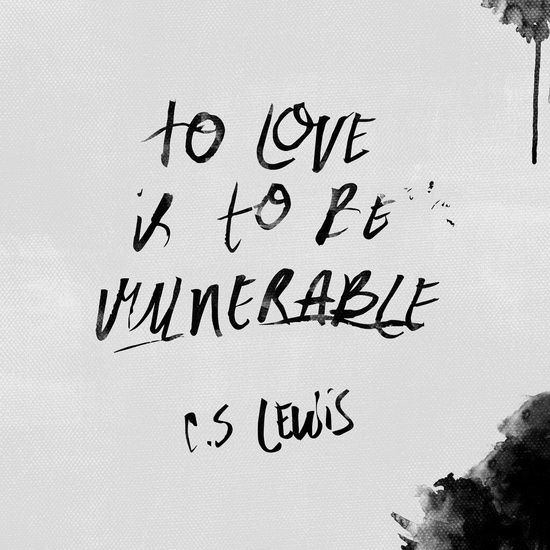 to LOVE
is to BE
VULNERABLE
C.S LEWIS